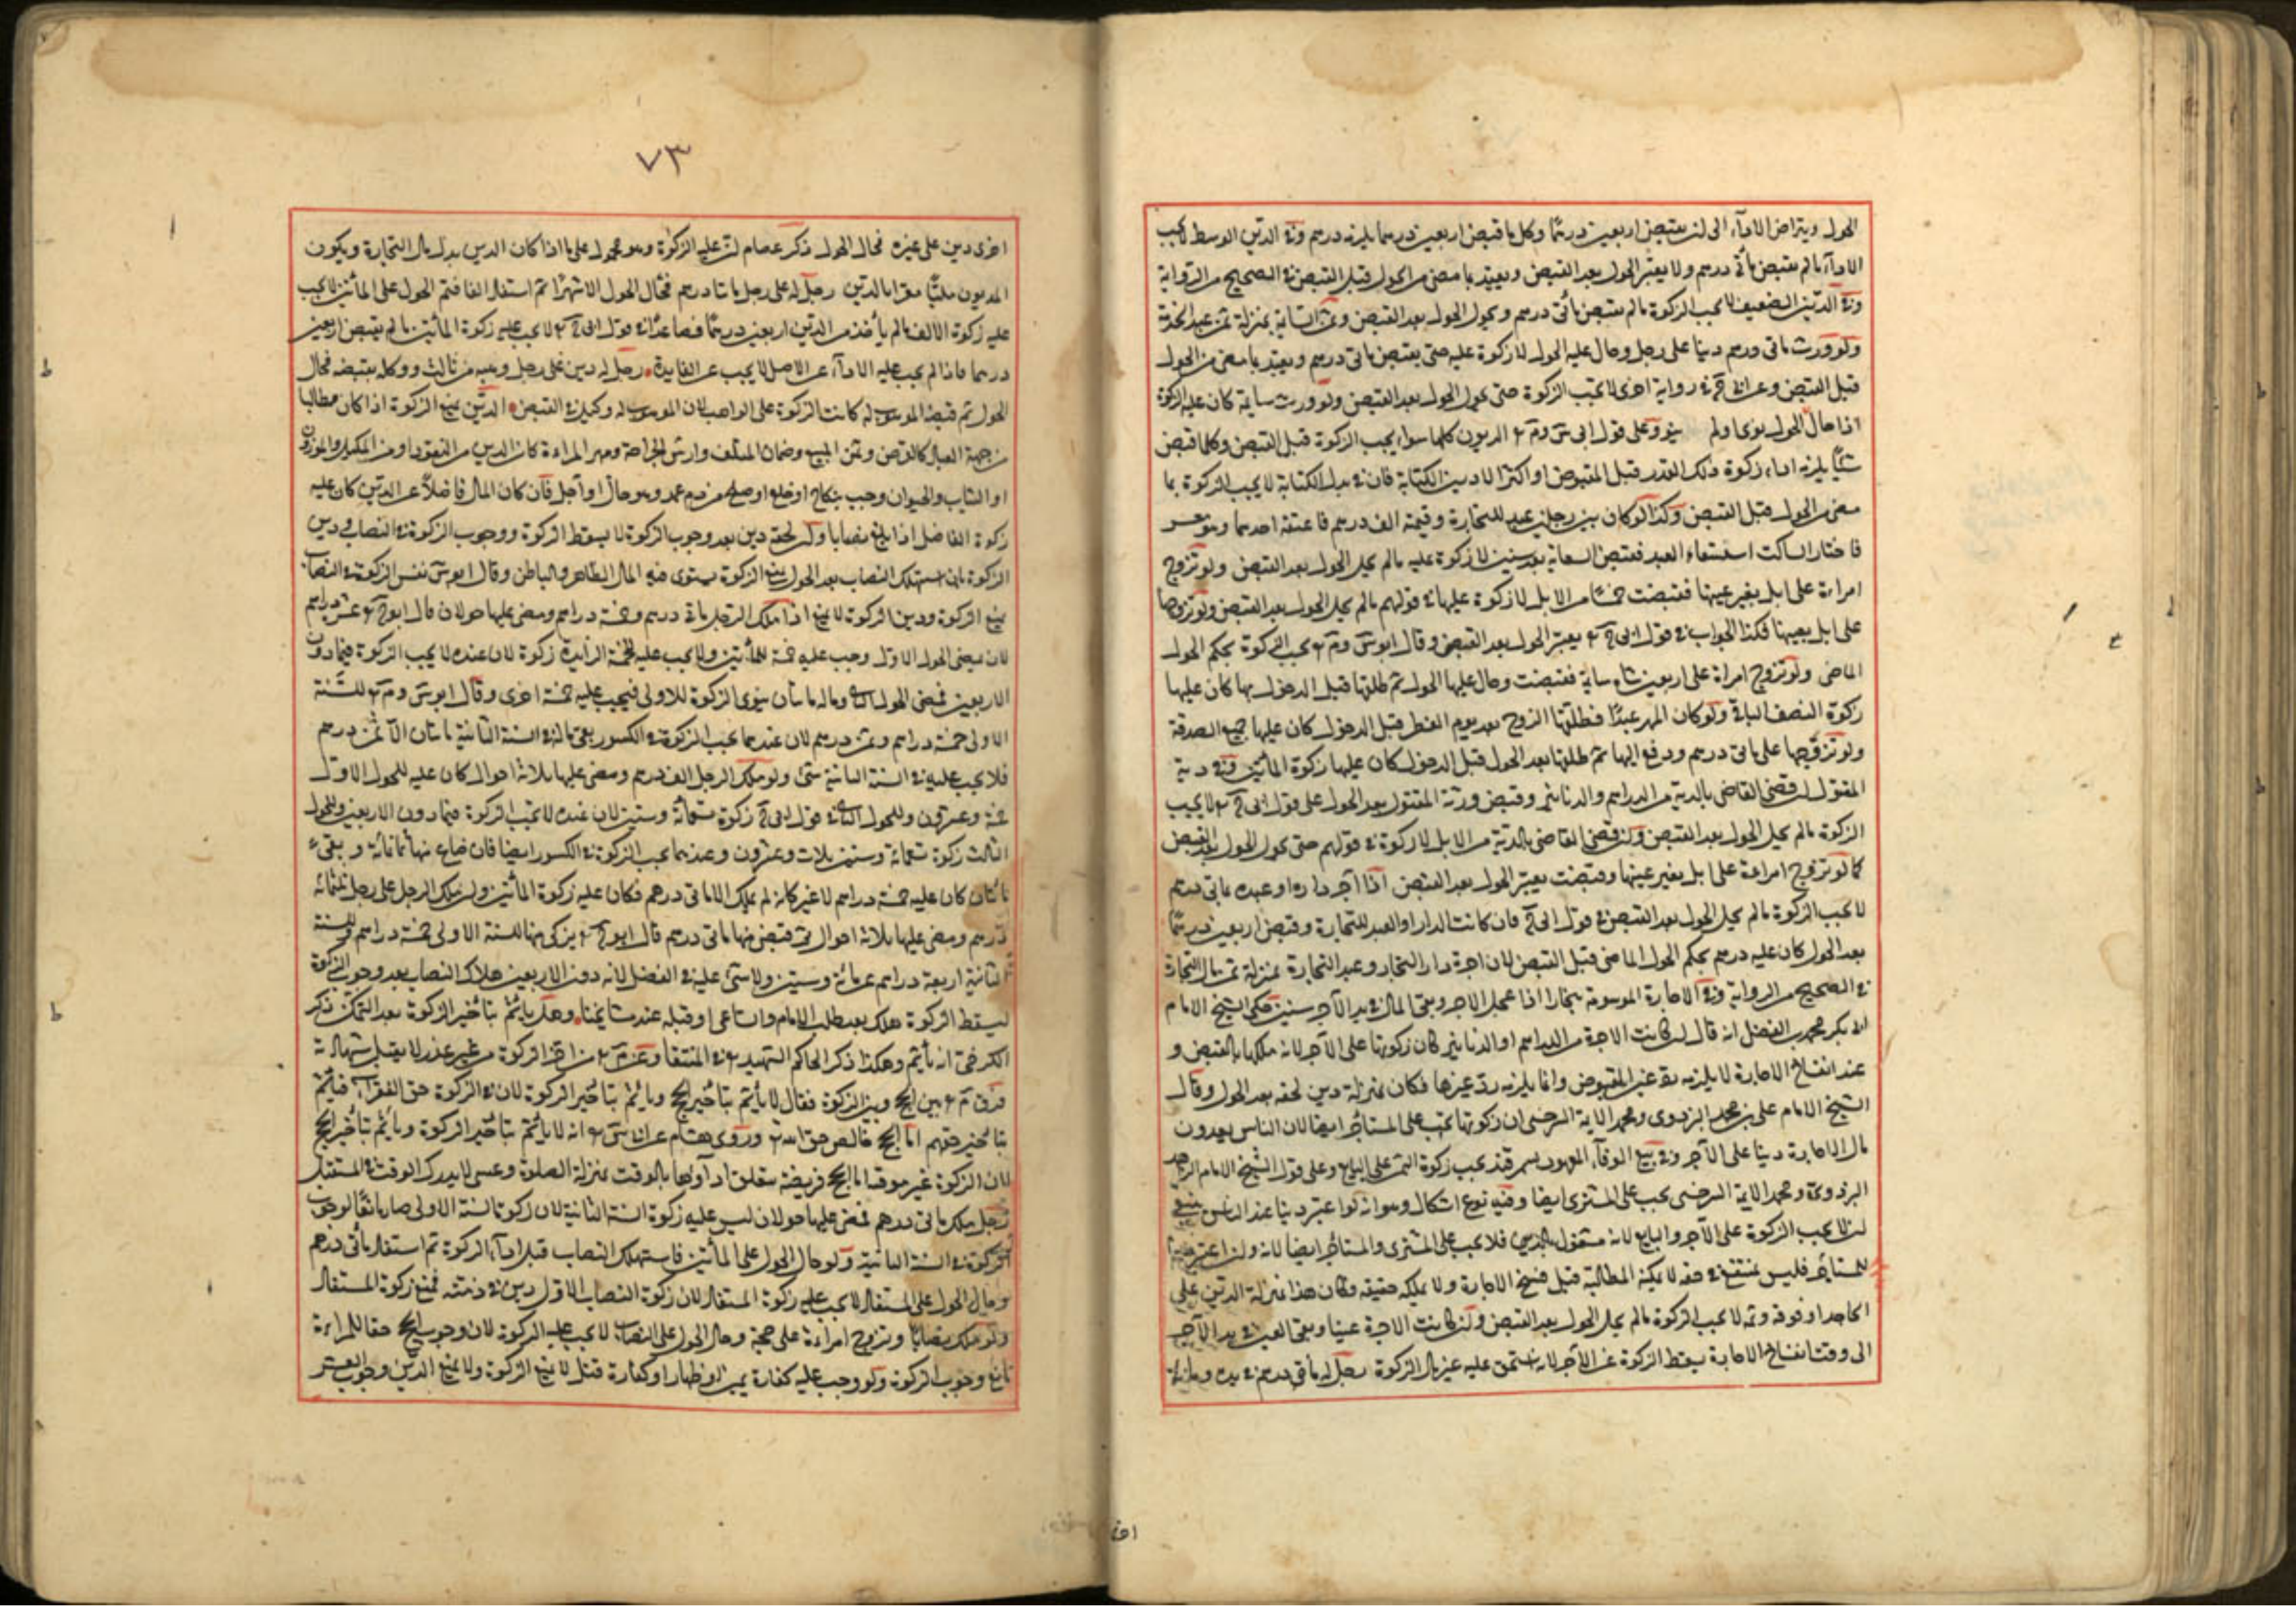 الحول ويتراض الاداء الى ان يقبض اربعين درهما وكل ما قبض اربعين درهما يلزمه درهم وفي الدين الوسط لا يجب
الاداء ما لم يقبض مأتي درهم ولا يعتبر الحول بعد القبض ويعتد بما مضى من الحول قبل القبض في الصحيح من الرواية
وفي الدين الضعيف لا يجب الزكوة ما لم يقبض مأتي درهم ويحول الحول بعد القبض وثمن السايمة بمنزلة ثمن عبد الخدمة
ولو ورث مأتي درهم دينا على رجل وحال عليه الحول لا زكوة عليه حتى يقبض مأتي درهم ويعتد بما مضى من الحول
قبل القبض وعن ابي ح في رواية اخرى لا يجب الزكوة حتى يحول الحول بعد القبض ولو ورث سايمة كان عليه الزكوة
اذا حال الحول نوى او لم ينو وعلى قول ابي س وم الديون كلها سواء يجب الزكوة قبل القبض وكلما قبض
شيئا يلزمه اداء زكوة ذلك القدر قبل المقبوض او اكثر الا دين الكتابة فان في بدل الكتابة لا يجب الزكوة بما
مضى من الحول قبل القبض وكذا لو كان بين رجلين عبد للتجارة وقيمته الف درهم فاعتقه احدهما وهو معسر
فاختار الساكت استسعاء العبد فقبض السعاية بعد سنين لا زكوة عليه ما لم يحل الحول بعد القبض ولو تزوج
امراءة على ابل بغير عينها فقبضت خمسا من الابل لا زكوة عليها في قولهم ما لم يحل الحول بعد القبض ولو تزوجها
على ابل بعينها فكذا الجواب في قول ابي ح يعتبر الحول بعد القبض وقال ابو س وم يجب الزكوة بحكم الحول
الماضي ولو تزوج امراة على اربعين شاة سايمة فقبضت وحال عليها الحول ثم طلقها قبل الدخول بها كان عليها
زكوة النصف الباقي ولو كان المهر عبدا فطلقها الزوج بعد يوم الفطر قبل الدخول كان عليها جميع الصدقة
ولو تزوجها على مأتي درهم ودفع اليها ثم طلقها بعد الحول قبل الدخول كان عليها زكوة المأتين وفي دية
المقتول ان قضى القاضي بالدية من الدراهم والدنانير وقبض ورثة المقتول بعد الحول على قول ابي ح لا يجب
الزكوة ما لم يحل الحول بعد القبض ولو قضى القاضي بالدية من الابل لا زكوة في قولهم حتى يحول الحول بعد القبض
كما لو تزوج امراءة على ابل بغير عينها وقبضت يعتبر الحول بعد القبض اذا آجر داره او عبده بمأتي درهم
لا يجب الزكوة ما لم يحل الحول بعد القبض في قول ابي ح فان كانت الدار او العبد للتجارة وقبض اربعين درهما
بعد الحول كان عليه درهم بحكم الحول الماضي قبل القبض لان اجرة دار التجار وعبد التجارة بمنزلة ثمن مال التجارة
في الصحيح من الرواية وفي الاجارة المرسومة ببخارا اذا عجل الاجر وبقى المال في يد الآجر سنين حكى الشيخ الامام
ابو بكر محمد بن الفضل انه قال ان كانت الاجرة من الدراهم او الدنانير كان زكوتها على الآجر لانه ملكها بالقبض و
عند انفساخ الاجارة لا يلزمه رد غير المقبوض وانما يلزمه رد غيرها فكان بمنزلة دين لحقه بعد الحول وقال
الشيخ الامام علي بن محمد البزدوي ومجد الايمة السرخسي ان زكوتها يجب على المستأجر ايضا لان الناس يعدون
مال الاجارة دينا على الآجر وفي بيع الوفاء المعهود بسمرقند يجب زكوة الثمن على البايع وعلى قول الشيخ الامام الزاهد
البزدوي ومجد الايمة السرخسي يجب على المشتري ايضا وفيه نوع اشكال وهو انه لو اعتبر دينا عند الناس ينبغي
ان لا يجب الزكوة على الآجر والبايع لانه مشغول بالدين فلا يجب على المشتري والمستأجر ايضا لانه وان اعتبر دينا
للمستأجر فليس بمنتفع في حقه لا يمكنه المطالبة قبل فسخ الاجارة ولا يملكه حقيقة فكان هذا بمنزلة الدين على
الجاحد او فوقه وثمه لا يجب الزكوة ما لم يحل الحول بعد القبض ولو كانت الاجرة عينا وبقى العين في يد الآجر
الى وقت انفساخ الاجارة يسقط الزكوة عن الآجر لانه استحق عليه عين مال الزكوة رجل له مأتي درهم في يده وله
اخرى
٧٣
اخرى دين على غيره فحال الحول ذكر عصام ان عليه الزكوة وهو محمول على ما اذا كان الدين بدل مال التجارة ويكون
المديون مليا مقرا بالدين رجل له على رجل مائتا درهم فحال الحول الا شهرا ثم استفاد الفا فتم الحول على المأتين لا يجب
عليه زكوة الالف ما لم يأخذ من الدين اربعين درهما فصاعدا في قول ابي ح لا يجب عليه زكوة المأتين ما لم يقبض اربعين
درهما فاذا لم يجب عليه الاداء عن الاصل لا يجب عن الفايدة رجل له دين على رجل وهبه من ثالث ووكله بقبضه فحال
الحول ثم قبضه الموهوب له كانت الزكوة على الواهب لان الموهوب له وكيل في القبض الدين يمنع الزكوة اذا كان مطالبا
من جهة العباد كالقرض وثمن المبيع وضمان المتلف وارش الجراحة ومهر المراءة كان الدين من النقود او من المكيل والموزون
او الثياب والحيوان وجب بنكاح او خلع او صلح من دم عمد وهو حال او آجل فان كان المال فاضلا عن الدين كان عليه
زكوة الفاضل اذا بلغ نصابا وان لحقه دين بعد وجوب الزكوة لا يسقط الزكوة ووجوب الزكوة في النصاب ودين
الزكوة بان استهلك النصاب بعد الحول يمنع الزكوة يستوى فيه المال الظاهر والباطن وقال ابو س نفس الزكوة في النصاب
يمنع الزكوة ودين الزكوة لا يمنع اذا ملك الرجل مأتي درهم وخمسة دراهم ومضى عليها حولان قال ابو ح عشرة دراهم
لان بمضى الحول الاول وجب عليه خمسة للمأتين ولا يجب عليه للخمسة الزايدة زكوة لان عنده لا يجب الزكوة فيما دون
الاربعين فمضى الحول الثاني وماله مائتان سوى الزكوة للاولى فيجب عليه خمسة اخرى وقال ابو س وم للسنة
الاولى خمسة دراهم وثمن درهم لان عندهما يجب الزكوة في الكسور بقى ماله في السنة الثانية مائتان الا ثمن درهم
فلا يجب عليه في السنة الثانية شئ ولو ملك الرجل الف درهم ومضى عليها ثلاثة احوال كان عليه للحول الاول
خمسة وعشرون وللحول الثاني في قول ابي ح زكوة تسعمائة وستين لان عنده لا يجب الزكوة فيما دون الاربعين وللحول
الثالث زكوة تسعمائة وستين ثلاث وعشرون وعندهما يجب الزكوة في الكسور ايضا فان ضاع منها ثمانمائة وبقى
مائتان كان عليه خمسة دراهم لا غير كانه لم يملك الا مأتي درهم فكان عليه زكوة المأتين وان ملك الرجل على رجل ثلثمائة
درهم ومضى عليها ثلاثة احوال ثم قبض منها مأتي درهم قال ابو ح يزكى منها للسنة الاولى خمسة دراهم وللسنة
الثانية اربعة دراهم عن مائة وستين ولا شئ عليه في الفضل لانه دون الاربعين هلاك النصاب بعد وجوب الزكوة
يسقط الزكوة هلك بعد طلب الامام والساعي او قبله عند مشايخنا وهل يأثم بتأخير الزكوة بعد التمكن ذكر
الكرخي انه يأثم وهكذا ذكر الحاكم الشهيد في المنتقى وعن م من اخر الزكوة من غير عذر لا يقبل شهادته
فرق م بين الحج وبين الزكوة فقال لا يأثم بتأخير الحج ويأثم بتأخير الزكوة لان في الزكوة حق الفقراء فيأثم
بتأخير حقهم اما الحج خالص حق الله وروى هشام عن ابي س انه لا يأثم بتأخير الزكوة ويأثم بتأخير الحج
لان الزكوة غير موقتة اما الحج فريضة يتعلق اداؤها بالوقت بمنزلة الصلوة وعسى لا يدرك الوقت في المستقبل
رجل ملك مأتي درهم فمضى عليها حولان ليس عليه زكوة السنة الثانية لان زكوة السنة الاولى صار مانعا لوجوب
الزكوة في السنة الثانية ولو حال الحول على المأتين فاستهلك النصاب قبل اداء الزكوة ثم استفاد مأتي درهم
وحال الحول على المستفاد لا يجب عليه زكوة المستفاد لان زكوة النصاب الاول دين في ذمته فمنع زكوة المستفاد
ولو ملك نصابا وتزوج امراءة على حجة وحال الحول على النصاب لا يجب عليه الزكوة لان وجوب الحج حقا للمراءة
مانع وجوب الزكوة ولو وجب عليه كفارة يمين او ظهار او كفارة قتل لا يمنع الزكوة ولا يمنع الدين وجوب العشر